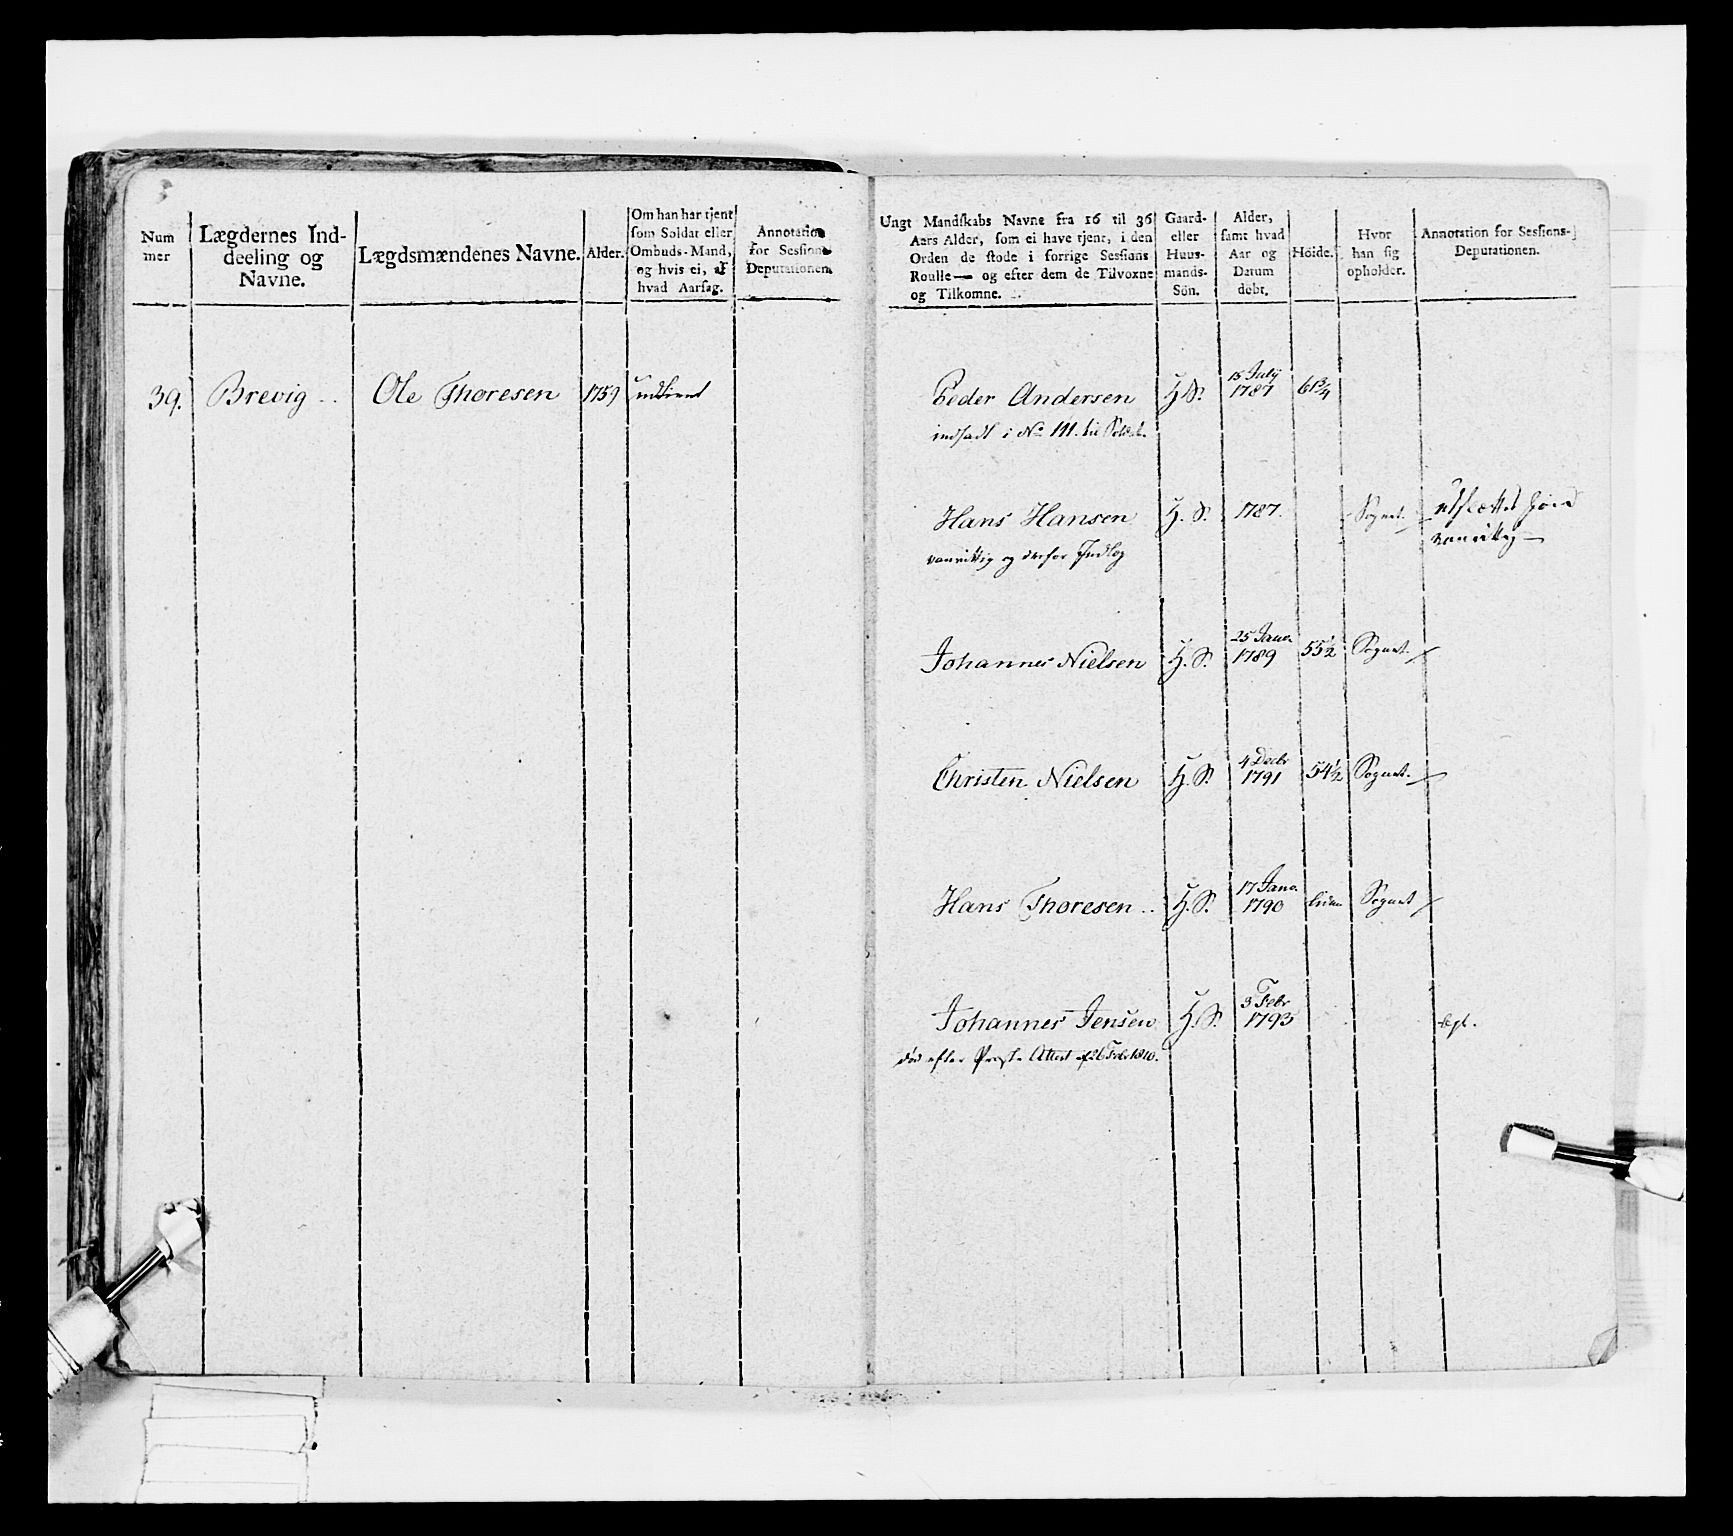 Num
mer
Lægdernes Ind-
deeling og
Navne.
Lægdsmændenes Navne.
Alder.
Om han har tjent
som Soldat eller
Ombuds-Mand,
og hvis ei, af
hvad Aarsag.
Annotation
for Sessions
Deputationen.
39. Brevig .. Ole Thoresen 1759 udtient
Ungt Mandskabs Navne fra 16 til 36
Aars Alder, som ei have tjent, i den
Orden de stode i forrige Sessions
Roulle— og efter dem de Tilvoxne
og Tilkomne.
Gaard-
eller
Huus-
mands-
Sön.
Alder,
samt hvad
Aar og
Datum
döbt.
Höide.
Hvor
han sig
opholder.
Annotation for Sessions-
Deputationen.
Peder Andersen H. S. 15 July 1787 61¾
indsadt i No 111. til Soldat.
Hans Hansen H. S. 1787. Sognet. udsættes
vanvittig
vanvittig og derfor Indlog
Johannes Nielsen H. S. 25 Janu. 1789 55½ Sognet.
Christen Nielsen H. S. 4 Decbr 1791 54½ Sognet.
Hans Thoresen .. H. S. 17 Janu. 1790 liden Sognet
Johannes Jensen H. S. 3 Febr 1793
død efter Præste Attest af 26 Febr 1810.